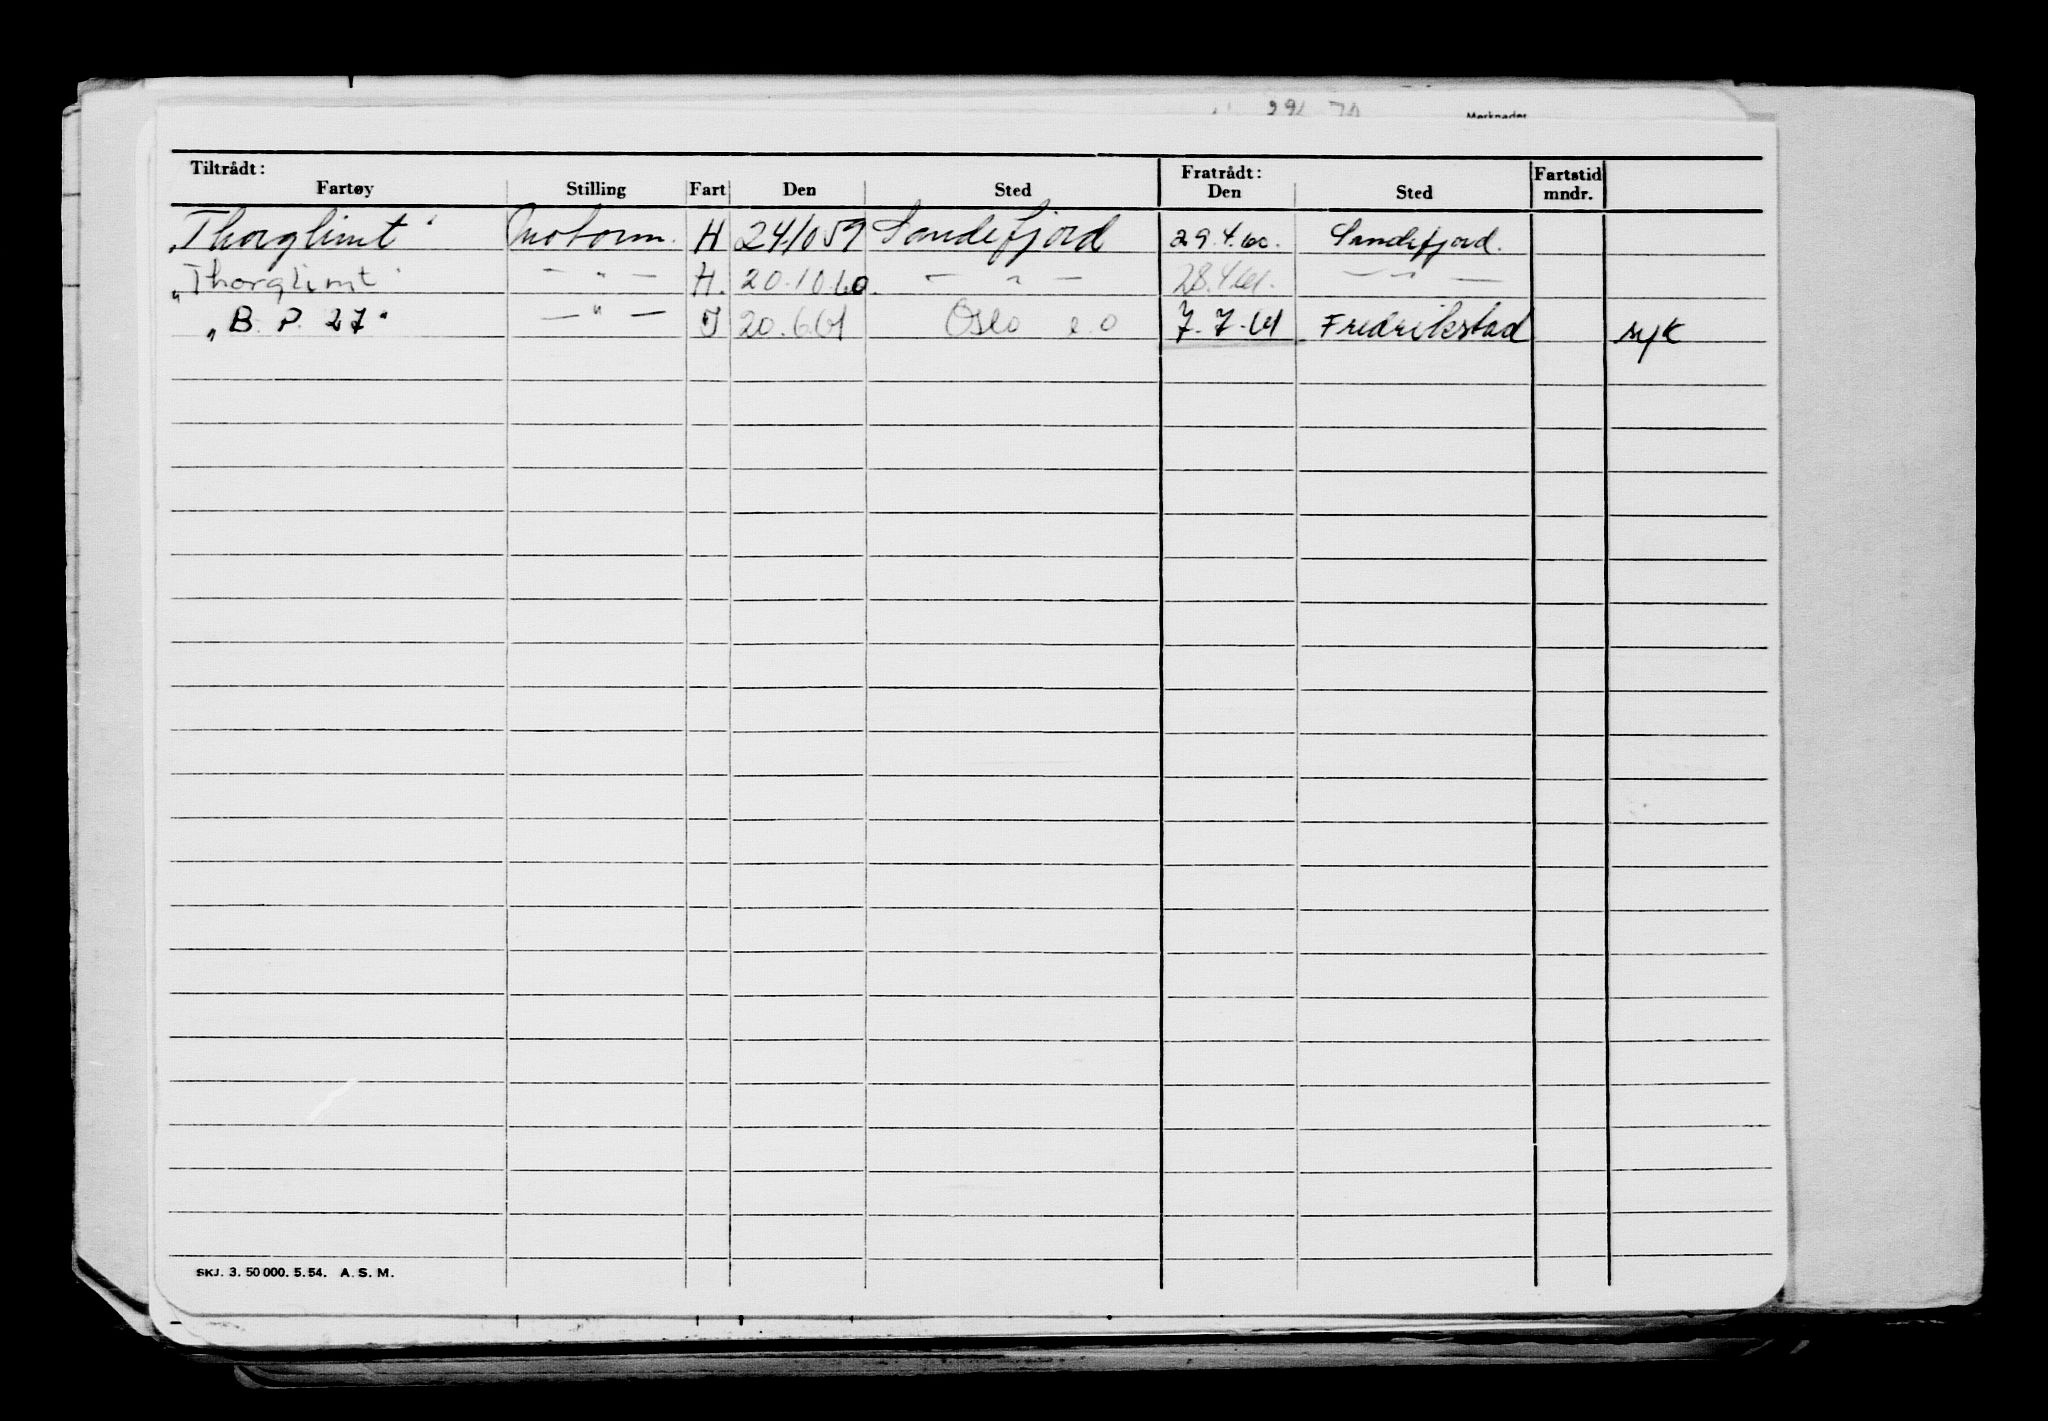 Merknader
Tiltrådt: Fratrådt: Fartstid
Fartøy Stilling Fart Den Sted Den Sted mndr.
"Thorglimt" Motorm. H 24/10 59 Sandefjord 29.4.60. Sandefjord.
"Thorglimt" — " — H. 20.10.60. — " — 28.4.61. — " —
"B. P. 27" — " — I 20.6.61 Oslo e.o 7.7.61 Fredrikstad syk
SKJ. 3. 50 000. 5. 54. A. S. M.